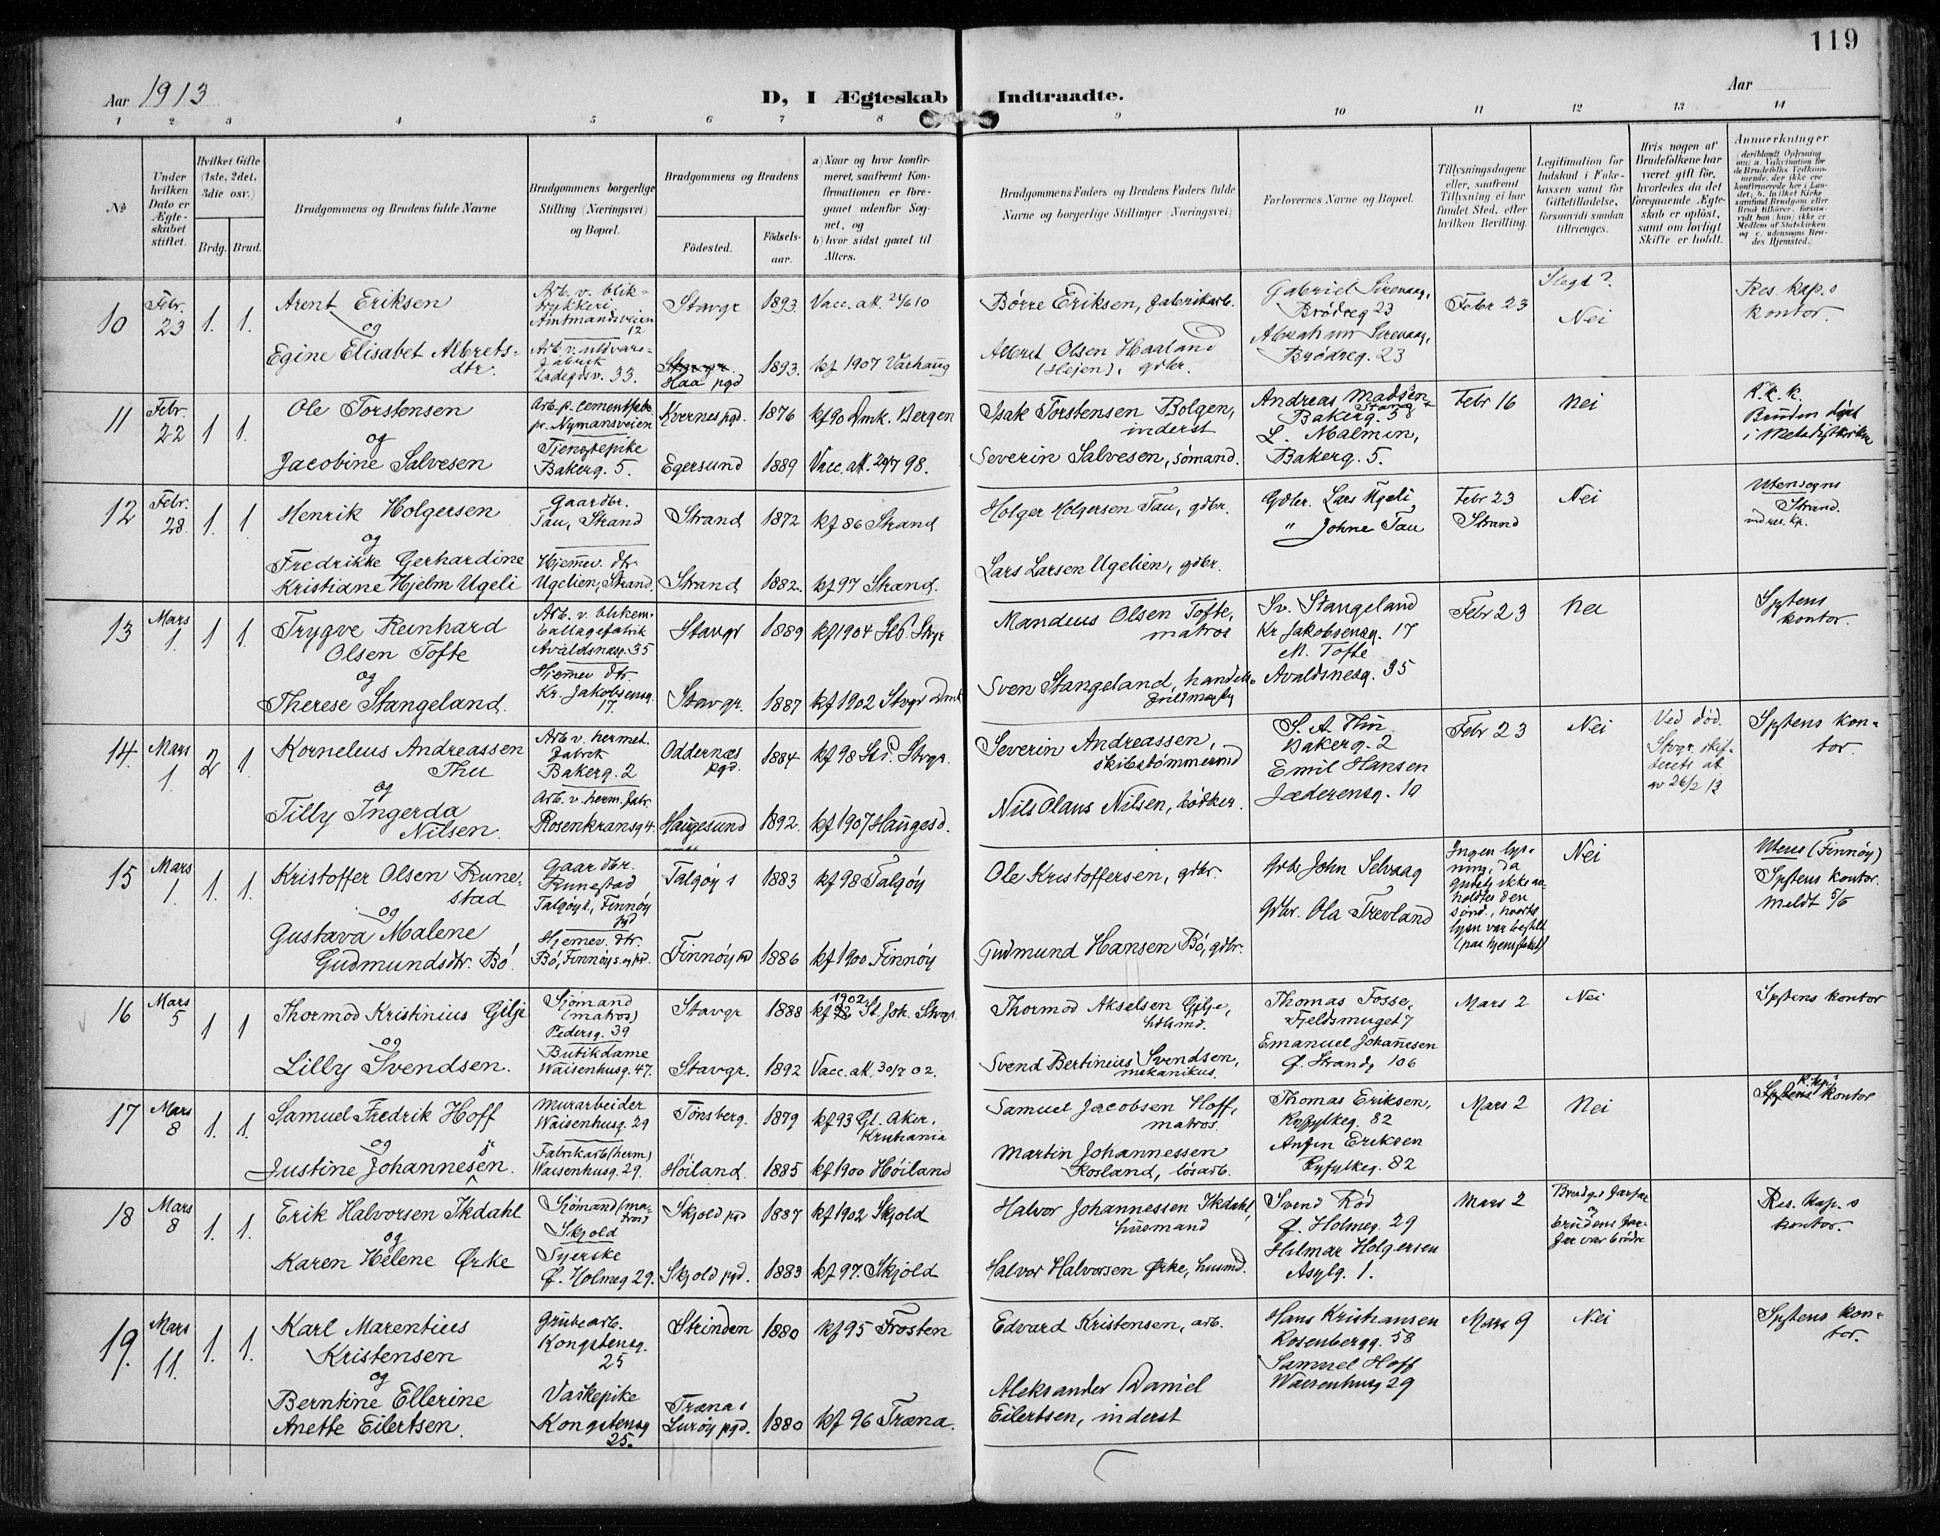 119
Aar 1913
D, I Ægteskab Indtraadte.
Aar
1 2 3 4 5 6 7 8 9 10 11 12 13 14
No
Under hvilken Dato er Ægteskabet stiftet.
Hvilket Gifte (1ste, 2det, 3die osv.)
Brdg. Brud.
Brudgommens og Brudens fulde Navne
Brudgommens borgerlige Stilling (Næringsvei) og Bopæl.
Brudgommens og Brudens
Födested.
Födselsaar.
a) Naar og hvor konfirmeret, saafremt Konfirmationen er foregaaet udenfor Sognet, og
b) hvor sidst gaaet til Alters.
Brudgommens Faders og Brudens Faders fulde Navne og borgerlige Stillinger (Næringsvei)
Forlovernes Navne og Bopæl.
Tillysningsdagene eller, saafremt Tillysning ei har fundet Sted, efter hvilken Bevilling.
Legitimation for Indskud i Enkekassen samt for Giftetilladelse, forsaavidt saadan tiltrænges.
Hvis nogen af Brudefolkene har været gift för, hvorledes da det foregaaende Ægteskab er oplöst, samt om lovligt Skifte er holdt.
Anmerkninger
10
Febr. 23
1. 1.
Arent Eriksen
og
Egine Elisabet Albretsdtr.
Arb. v. bliktrykkeri
Amtmandsveien 12
Ladegdsv. 33.
Stavgr
Haa pgd
1893
1893.
Vacc. att. 24/6 10
kf 1907 Varhaug
Börre Eriksen, fabrikarb.
Albret Olsen Haaland
(Höjen), gdbr.
Gabriel Sirevaag,
Brödreg 23
Abraham Sirevaag,
Brödreg. 23
Febr 23
Slegt?
Nei
Res. kap.s
kontor.
11
Febr. 22
1 1.
Ole Torstensen
og
Jacobine Salvesen
Arb. p. cementfabr.
Nymansveien
Tjenestepike
Bakerg. 5.
Kvernes pgd.
Egersund
1876
1889
kf 90 Dmk. Bergen
Vacc. att. 20/7 98.
Isak Torstensen Bolgen,
inderst
Severin Salvesen, sömand.
Andreas Madsen
Bakerg. 5
L. Malmin,
Bakerg. 5.
Febr 16
Nei
Bruden döbt
i Metodistkirken
12
Febr. 28
1. 1
Henrik Holgersen
og
Fredrikke Gerhardine
Kristiane Hjelm Ugeli
Gaardbr.
Tau, Strand
Hjemmev. dtr
Ugelien, Strand.
Strand
Strand
1872
1882.
kf 86 Strand
kf 97 Strand.
Holger Holgersen Tau, gdbr.
Lars Larsen Ugelien, gdbr.
Gdbr. Lars Ugeli
" Johne Tau
Febr 23
Strand
Nei
Utensogns
Strand.
ved res. kp.
13
Mars 1.
1 1
Trygve Reinhard
Olsen Tofte
og
Therese Stangeland.
Arb. v. blikemballagefabrik
Avaldsnesg. 35
Hjemmev dtr.
Kr. Jakobsensg. 17.
Stavgr
Stavgr.
1889
1887
kf 1904 Stvgr
kf 1902 Stvgr dmk
Mandius Olsen Tofte,
matros
Sven Stangeland,
Sv. Stangeland
Kr. Jakobsensg. 17
M. Tofte
Avaldsnesg. 35
Febr 23
Nei
Spstens
kontor.
14.
Mars 1
2 1.
Kornelius Andreassen
Thu
og
Tilly Ingerda
Nilsen.
Arb v. hermet.
fabrik
Bakerg. 2
Arb. v. herm. fabr.
Rosenkransg 4.
Oddernæs
pgd.
Haugesund
1884
1892.
kf 98 Stvgr.
kf 1907 Haugesd.
Severin Andreassen,
skibstömmermd
Nils Olaus Nilsen, bödker.
S. A. Thu
Bakerg. 2
Emil Hansen
Jæderensg. 10
Febr 23
Nei
Ved död.
Stvgr. skifterets at
av 26/2 13
Spstens kontor.
15
Mars 1.
1. 1.
Kristoffer Olsen Runestad
og
Gustava Malene
Gudmundsdtr. Bö.
Gaardbr.
Talgöy s, Finnöy pgd
Hjemmev. dtr.
Bö, Finnöy s. og pd.
Talgöy s
Finnöy pd
1883
1886
kf 98 Talgöy
kf 1900 Finnöy
Ole Kristoffersen, gdbr.
Gudmund Hansen Bö, gdbr.
Gdbr John Selvaag
Gdbr. Ola Trevland
Ingen lysning, da
gudstj. ikke avholdtes den
sönd., hvortil
lysn var bestilt
Nei
Utens (Finnöy)
Spstens kontor.
Meldt 5/5
16
Mars 5
1 1
Thormod Kristinius Gilje
og
Lilly Svendsen.
Sjömand
(matros)
Pedersg. 39
Butikdame
Waisenhusg. 47.
Stavgr
Stavgr.
1888
1892
kf 1902 St Joh. Stvgr.
Vacc. att. 30/7 02.
Thormod Akselsen Gilje,
Svend Bertinius Svendsen,
mekanikus.
Thomas Fosse,
Fjeldsmuget 7
Emanuel Johannesen
Ö. Strandg 106
Mars 2
Nei
Spstens kontor
17
Mars 8
1. 1.
Samuel Fredrik Hoff
og
Justine Johannesen.
Murarbeider
Waisenhusg. 29
Fabrikarb (herm)
Waisenhusg. 29.
Tönsberg.
Höiland.
1879
1885
kf 93 Gl. Aker,
Kristiania
kf 1900 Höiland
Samuel Jacobsen Hoff,
matros.
Martin Johannessen
Rosland, lösarb.
Thomas Eriksen,
Ryfylkeg. 82
Anfin Eriksen
Ryfylkeg. 82
Mars 2
Nei
kontor
18
Mars 8
1. 1.
Erik Halvorsen Ikdahl
og
Karen Helene Ørke
Sjömand (matros)
Skjold
Syerske
Ö. Holmeg 29.
Skjold pgd
Skjold pgd.
1887
1883
kf 1902 Skjold
kf 97. Skjold
Halvor Johannessen Ikdahl,
husmand
Halvor Halvorsen Ørke, husmd.
Svend Röd
Ö. Holmeg. 29
Hilmar Holgersen
Asylg. 1.
Mars 2
Brudgs farfar
og
brudens farfar var brödre
Res. kap.s
kontor.
19.
Mars 11.
1. 1.
Karl Marentius
Kristensen
og
Berntine Ellerine
Anette Eilertsen.
Grubearb.
Kongstensg.
25
Vaskepike
Kongstensg
25.
Strinden
Træna s
Luröy pgd.
1880
1880
kf 95 Frosten
kf 96 Træna.
Edvard Kristensen, arb.
Aleksander Daniel
Eilertsen, inderst
Hans Kristiansen
Rosenbergg. 58
Samuel Hoff
Waisenhusg 29
Mars 9
Nei
Spstens kontor.